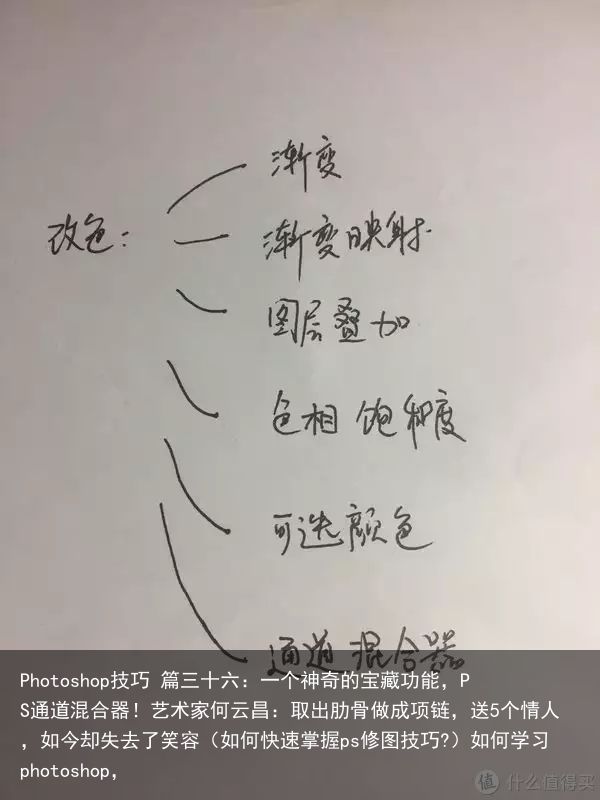 渐变
改色：
渐变映射
图层叠加
色相 饱和度
可选颜色
通道混合器
Photoshop技巧 篇三十六：一个神奇的宝藏功能，P
S通道混合器！艺术家何云昌：取出肋骨做成项链，送5个情人
，如今却失去了笑容（如何快速掌握ps修图技巧?）如何学习
photoshop，
值 什么值得买